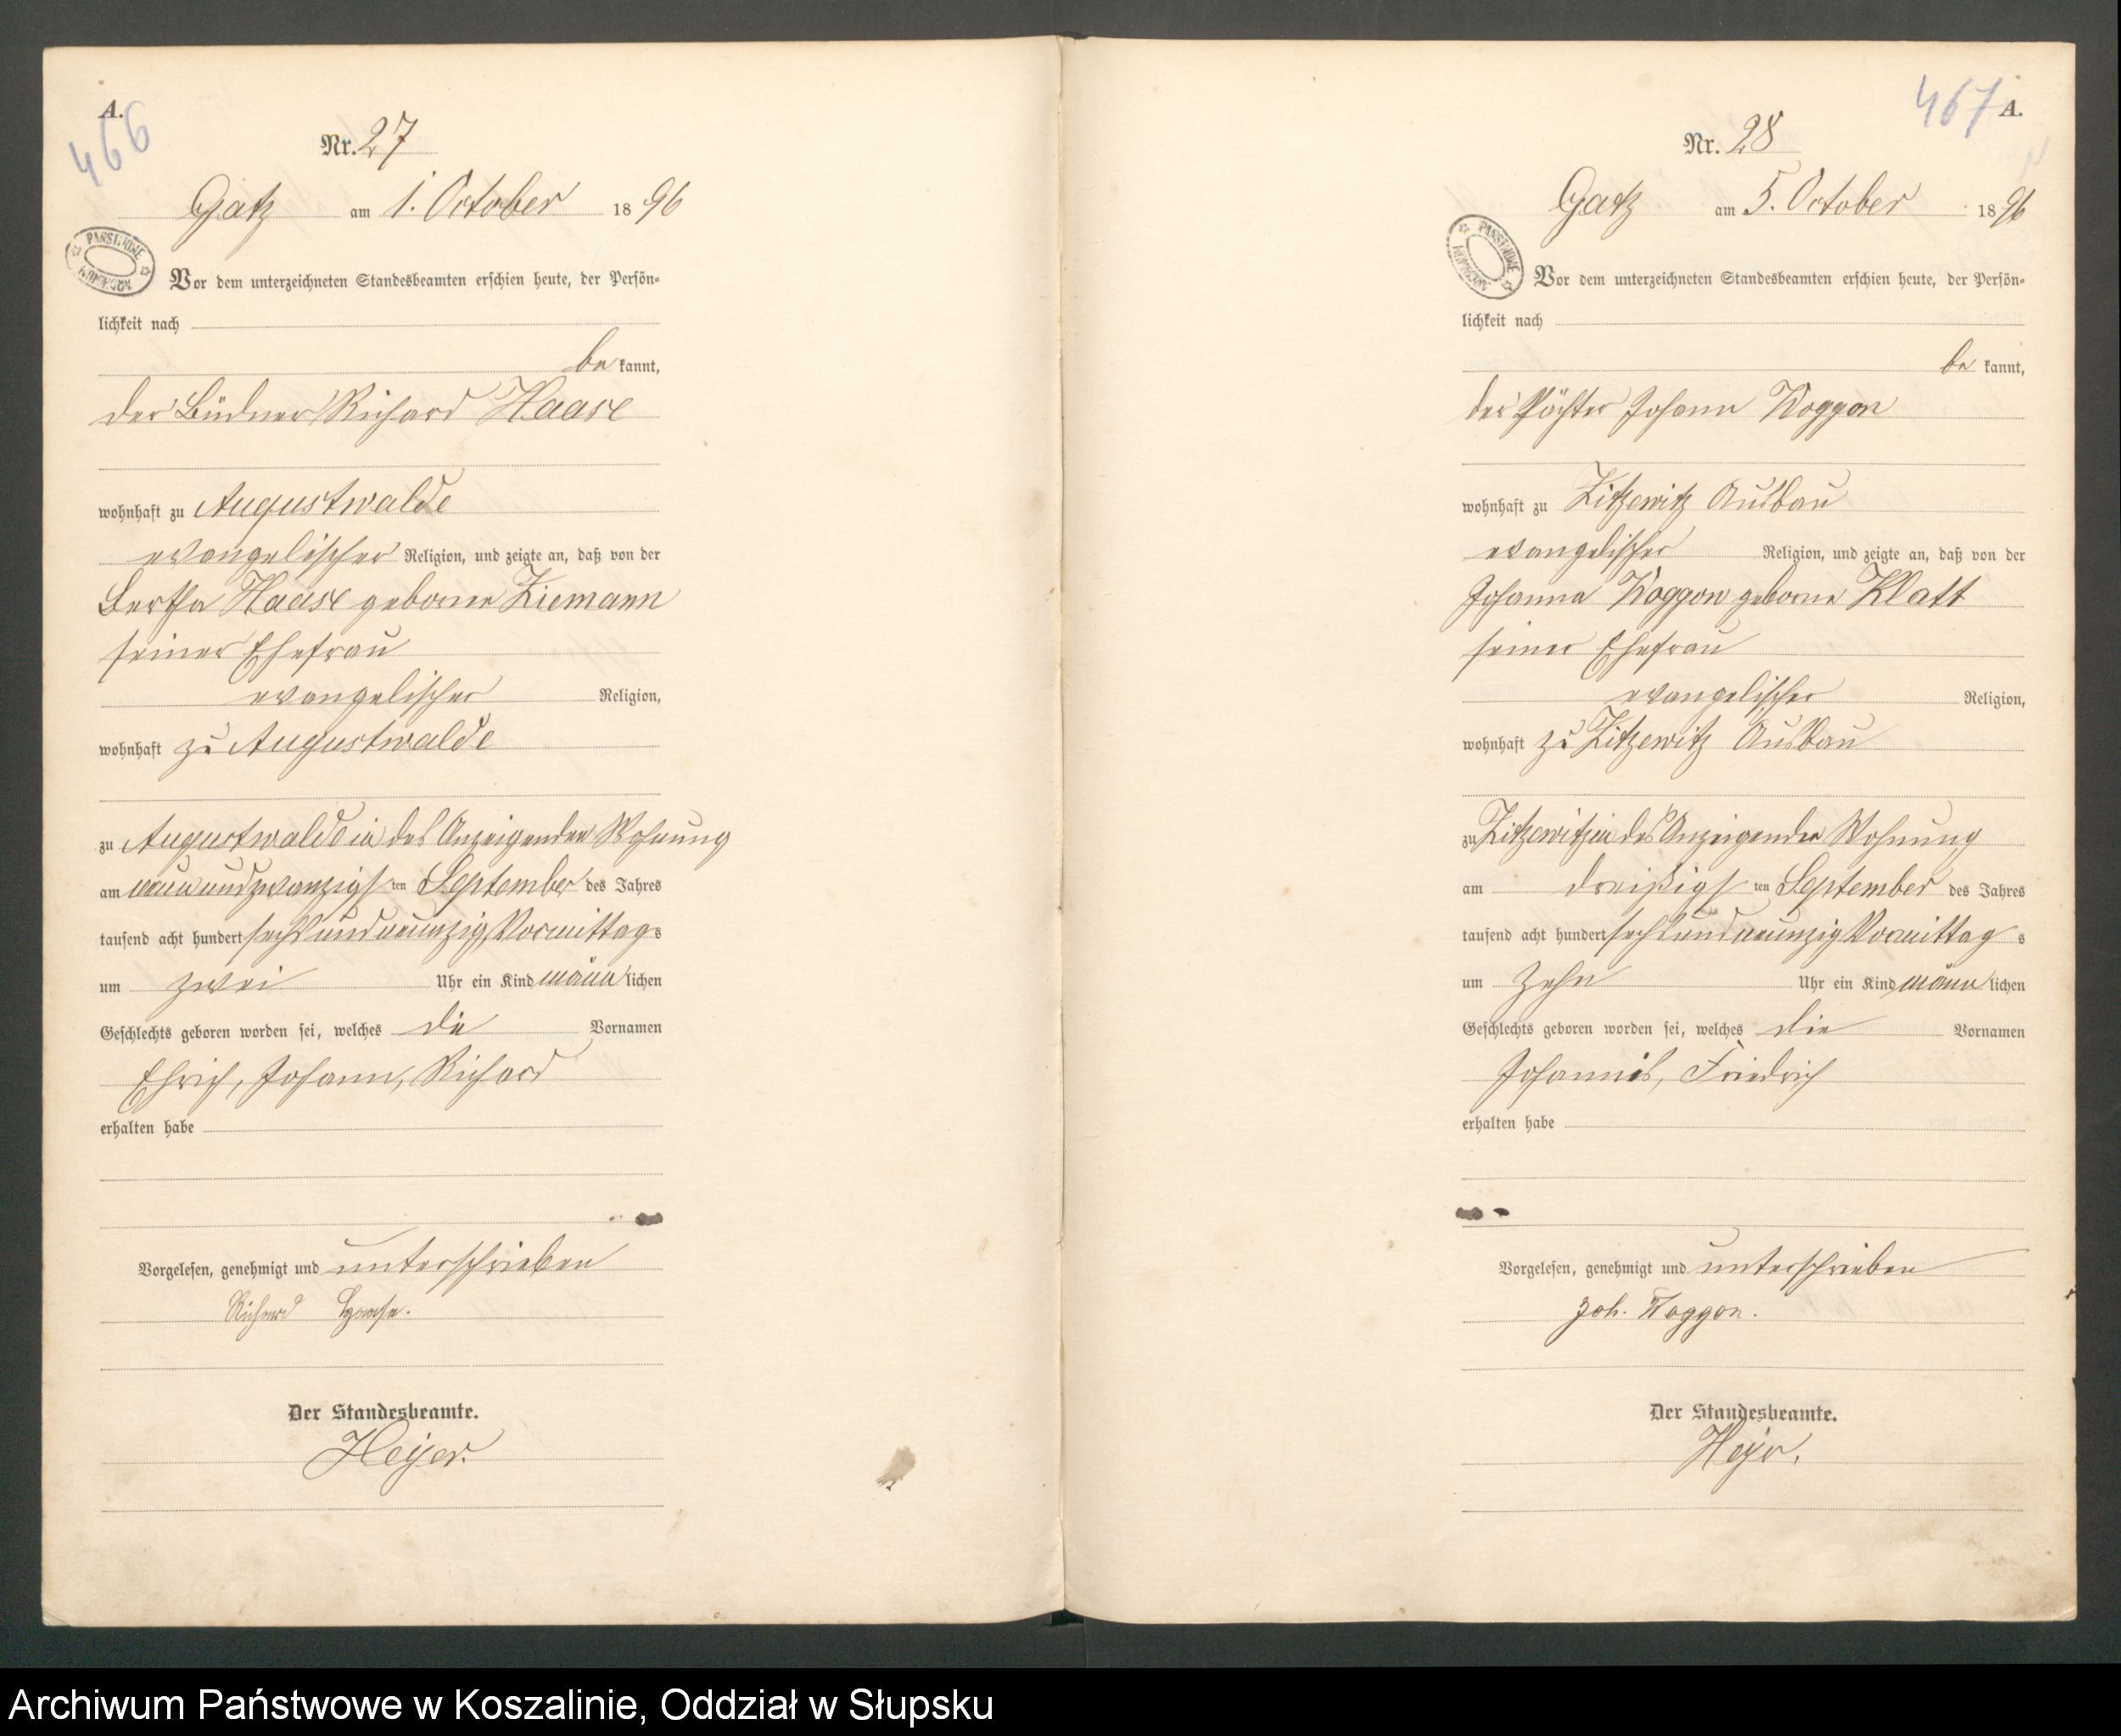 A.
466
Nr. 27
Gatz am 1. October 1896
PAŃSTWOWE ARCHIWUM
Vor dem unterzeichneten Standesbeamten erschien heute, der Persön-
lichkeit nach
be kannt,
der Büdner Richard Haase
wohnhaft zu Augustwalde
evangelischer Religion, und zeigte an, daß von der
Bertha Haase geborne Ziemann
seiner Ehefrau
evangelischer Religion,
wohnhaft zu Augustwalde
zu Augustwalde in des Anzeigenden Wohnung
am neunundzwanzigsten September des Jahres
tausend acht hundert sechsundneunzig Vormittags
um zwei Uhr ein Kind männlichen
Geschlechts geboren worden sei, welches die Vornamen
Ehrich, Johann, Richard
erhalten habe
Vorgelesen, genehmigt und unterschrieben
Richard Haase.
Der Standesbeamte.
Heyer.
467 A.
Nr. 28
Gatz am 5. October 1896
PAŃSTWOWE ARCHIWUM
Vor dem unterzeichneten Standesbeamten erschien heute, der Persön-
lichkeit nach
be kannt,
der Pächter Johann Woggon
wohnhaft zu Zitzewitz Ausbau
evangelischer Religion, und zeigte an, daß von der
Johanna Woggon geborne Klatt
seiner Ehefrau
evangelischer Religion,
wohnhaft zu Zitzewitz Ausbau
zu Zitzewitz in des Anzeigenden Wohnung
am dreißigsten September des Jahres
tausend acht hundert sechsundneunzig Vormittags
um zehn Uhr ein Kind männlichen
Geschlechts geboren worden sei, welches die Vornamen
Johannes, Friedrich
erhalten habe
Vorgelesen, genehmigt und unterschrieben
Joh. Woggon.
Der Standesbeamte.
Heyer.
Archiwum Państwowe w Koszalinie, Oddział w Słupsku